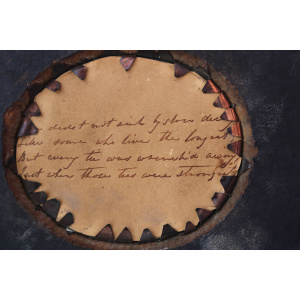 didst not sink by slow decay
Like some who live the longest
But every tie was wrenched away
Just when those ties were strongest